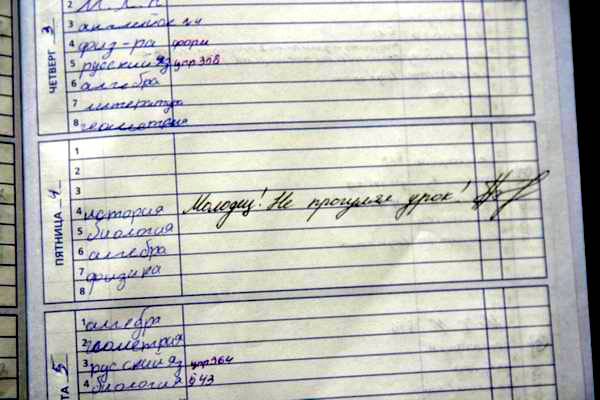 2 М.Х.К
3 английск
ЧЕТВЕРГ 3
4 физ-ра форм
5 русский яз упр 308
6 алгебра
7 литература
8 геометрия
ПЯТНИЦА 4
1
2
3
4 история Молодец! Не прогулял урок!
5 биология
6 алгебра
7 физика
8
ТА 5
1 алгебра
2 геометрия
3 русский яз упр 364
4 биология § 43